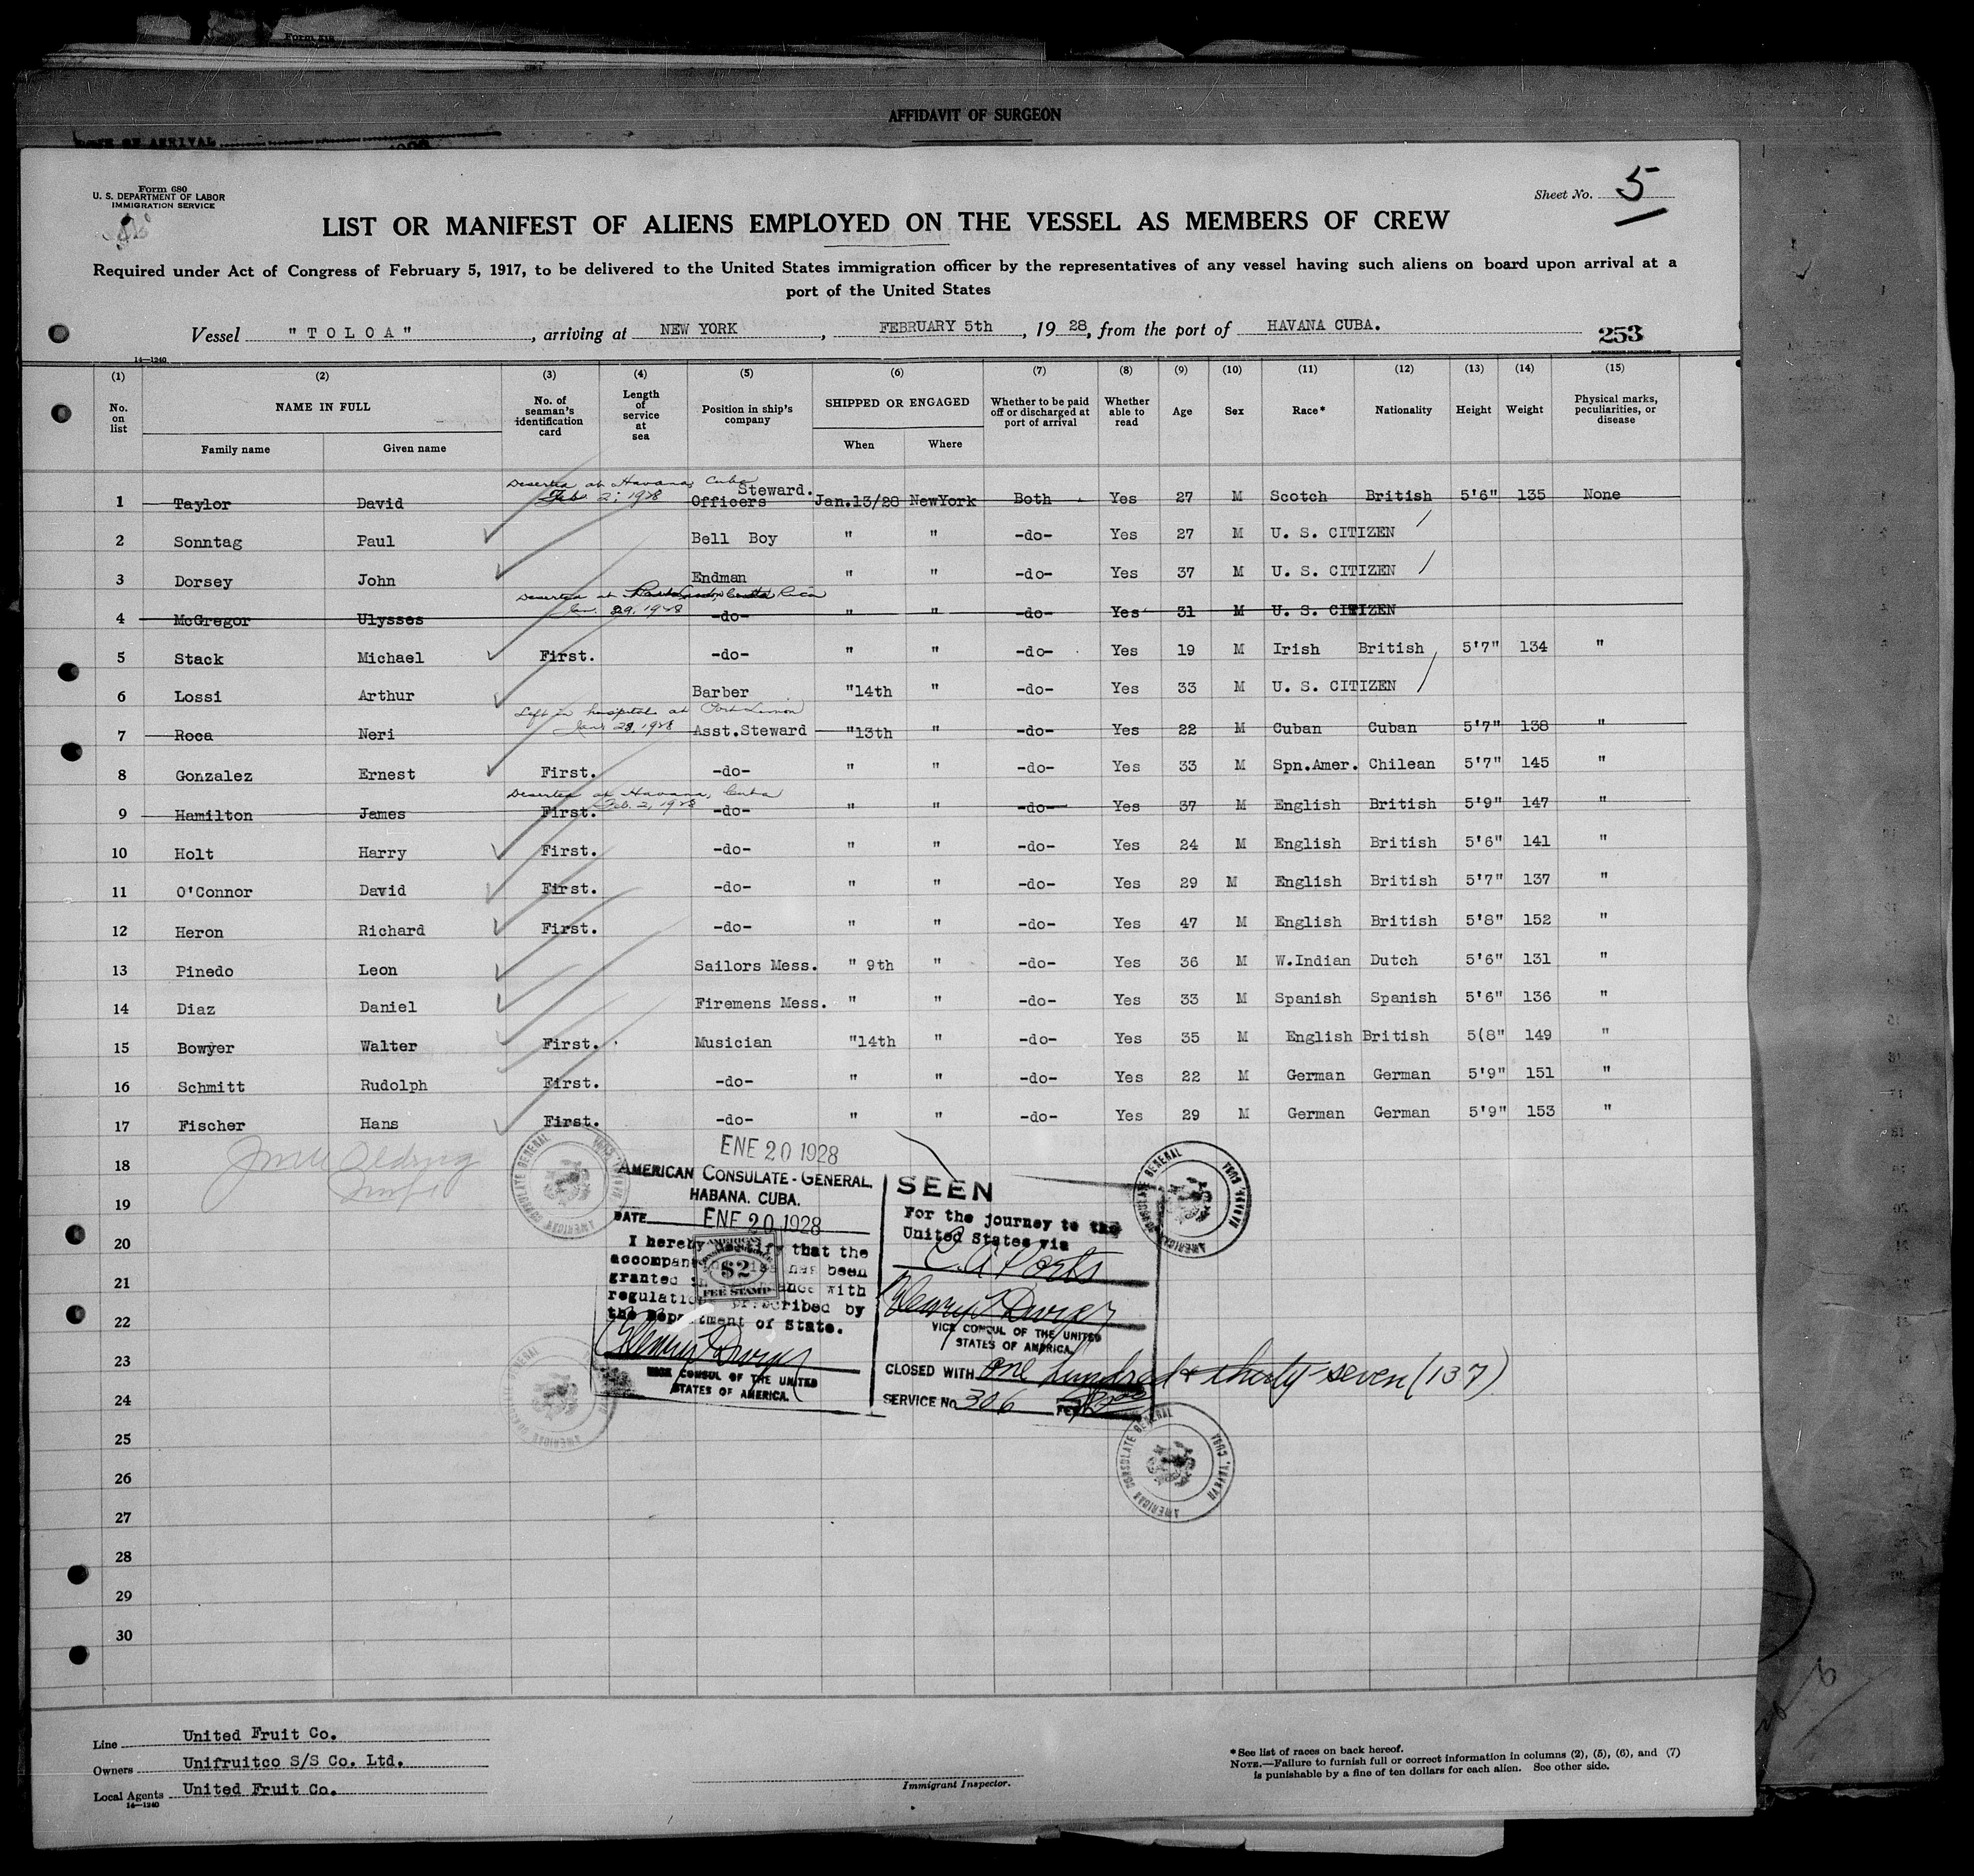 Form 618
AFFIDAVIT OF SURGEON
PORT OF ARRIVAL
Form 680
U. S. DEPARTMENT OF LABOR
IMMIGRATION SERVICE
Sheet No. 5
LIST OR MANIFEST OF ALIENS EMPLOYED ON THE VESSEL AS MEMBERS OF CREW
Required under Act of Congress of February 5, 1917, to be delivered to the United States immigration officer by the representatives of any vessel having such aliens on board upon arrival at a
port of the United States
Vessel "TOLOA", arriving at NEW YORK, FEBRUARY 5th, 1928, from the port of HAVANA CUBA.
253
14—1240
(1) (2) (3) (4) (5) (6) (7) (8) (9) (10) (11) (12) (13) (14) (15)
No. on list NAME IN FULL Family name Given name No. of seaman's identification card Length of service at sea Position in ship's company SHIPPED OR ENGAGED When Where Whether to be paid off or discharged at port of arrival Whether able to read Age Sex Race* Nationality Height Weight Physical marks, peculiarities, or disease
Deserted at Havana, Cuba
Feb. 2; 1928
1 Taylor David Officers Steward. Jan.13/28 NewYork Both Yes 27 M Scotch British 5'6" 135 None
2 Sonntag Paul Bell Boy " " -do- Yes 27 M U. S. CITIZEN
3 Dorsey John Endman " " -do- Yes 37 M U. S. CITIZEN
Deserted at Port Limon, Costa Rica
Jan. 29, 1928
4 McGregor Ulysses -do- " " -do- Yes 31 M U. S. CITIZEN
5 Stack Michael First. -do- " " -do- Yes 19 M Irish British 5'7" 134 "
6 Lossi Arthur Barber "14th " -do- Yes 33 M U. S. CITIZEN
Left in hospital at Port Limon
Jan. 28, 1928
7 Roca Neri Asst.Steward "13th " -do- Yes 22 M Cuban Cuban 5'7" 138 "
8 Gonzalez Ernest First. -do- " " -do- Yes 33 M Spn.Amer. Chilean 5'7" 145 "
Deserted at Havana, Cuba
Feb. 2, 1928
9 Hamilton James First. -do- " " -do- Yes 37 M English British 5'9" 147 "
10 Holt Harry First. -do- " " -do- Yes 24 M English British 5'6" 141 "
11 O'Connor David First. -do- " " -do- Yes 29 M English British 5'7" 137 "
12 Heron Richard First. -do- " " -do- Yes 47 M English British 5'8" 152 "
13 Pinedo Leon Sailors Mess. " 9th " -do- Yes 36 M W.Indian Dutch 5'6" 131 "
14 Diaz Daniel Firemens Mess. " " -do- Yes 33 M Spanish Spanish 5'6" 136 "
15 Bowyer Walter First. Musician "14th " -do- Yes 35 M English British 5(8" 149 "
16 Schmitt Rudolph First. -do- " " -do- Yes 22 M German German 5'9" 151 "
17 Fischer Hans First. -do- " " -do- Yes 29 M German German 5'9" 153 "
18
19
20
21
22
23
24
25
26
27
28
29
30
ENE 20 1928
AMERICAN CONSULATE-GENERAL,
HABANA. CUBA.
DATE ENE 20 1928
I hereby certify that the
accompanying visa has been
granted in accordance with
regulations prescribed by
the Department of State.
$2
FEE STAMP
VICE CONSUL OF THE UNITED
STATES OF AMERICA.
SEEN
For the journey to the
United States via
U.S. Ports
VICE CONSUL OF THE UNITED
STATES OF AMERICA.
CLOSED WITH one hundred & thirty seven (137)
SERVICE No. 306 FEE
AMERICAN CONSULATE GENERAL HABANA, CUBA
AMERICAN CONSULATE GENERAL HABANA, CUBA
AMERICAN CONSULATE GENERAL
AMERICAN CONSULATE GENERAL HABANA, CUBA
Line United Fruit Co.
Owners Unifruitco S/S Co. Ltd.
Local Agents United Fruit Co.
14—1240
Immigrant Inspector.
*See list of races on back hereof.
NOTE.—Failure to furnish full or correct information in columns (2), (5), (6), and (7)
is punishable by a fine of ten dollars for each alien. See other side.